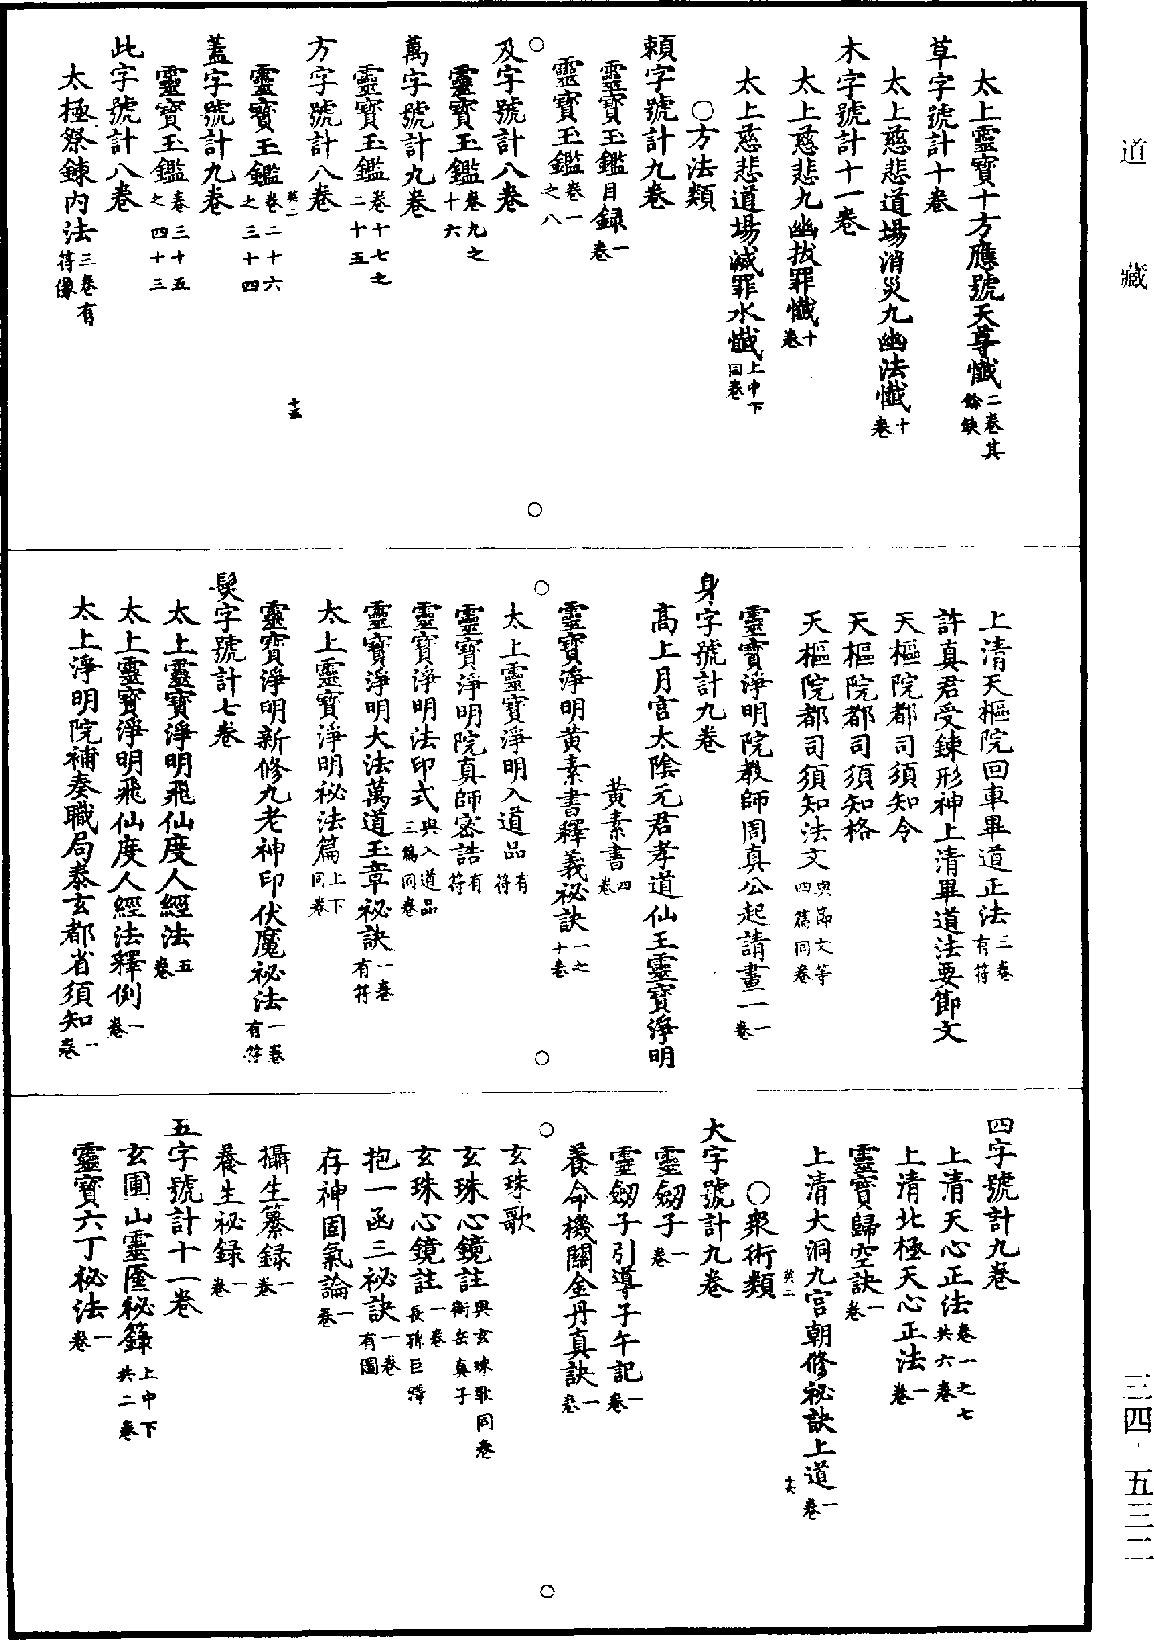 道藏
太上靈寶十方應號天尊懺二卷其餘缺
草字號計十卷
太上慈悲道場消災九幽法懺十卷
木字號計十一卷
太上慈悲九幽拔罪懺十卷
太上慈悲道場滅罪水懺上中下同卷
○方法類
賴字號計九卷
靈寶玉鑑目録一卷
靈寶玉鑑卷一之八
及字號計八卷
靈寶玉鑑卷九之十六
萬字號計九卷
靈寶玉鑑卷十七之二十五
方字號計八卷
靈寶玉鑑卷二十六之三十四
蓋字號計九卷
靈寶玉鑑卷三十五之四十三
此字號計八卷
太極祭鍊内法三卷有符像
上清天樞院回車畢道正法三卷有符
許真君受鍊形神上清畢道法要節文
天樞院都司須知令
天樞院都司須知格
天樞院都司須知法文與節文等四篇同卷
靈寶淨明院教師周真公起請畫一一卷
身字號計九卷
高上月宮太陰元君孝道仙王靈寶淨明
黃素書四卷
靈寶淨明黃素書釋義祕訣一之十卷
太上靈寶淨明入道品有符
靈寶淨明院真師密誥有符
靈寶淨明法印式與入道品三篇同卷
靈寶淨明大法萬道玉章祕訣一卷有符
太上靈寶淨明祕法篇上下同卷
靈寶淨明新修九老神印伏魔祕法一卷有符
髮字號計七卷
太上靈寶淨明飛仙度人經法五卷
太上靈寶淨明飛仙度人經法釋例一卷
太上淨明院補奏職局泰玄都省須知一卷
四字號計九卷
上清天心正法卷一之七共六卷
上清北極天心正法一卷
靈寶歸空訣一卷
上清大洞九宮朝修祕訣上道一卷
○衆術類
大字號計九卷
靈劒子一卷
靈劒子引導子午記一卷
養命機關金丹真訣一卷
玄珠歌
玄珠心鏡註與玄珠歌同卷衡岳真子
玄珠心鏡註一卷長孫巨澤
抱一函三祕訣一卷有圖
存神固氣論一卷
攝生纂録一卷
養生祕録一卷
五字號計十一卷
玄圃山靈匧秘籙上中下共二卷
靈寶六丁祕法一卷
三四·五三二